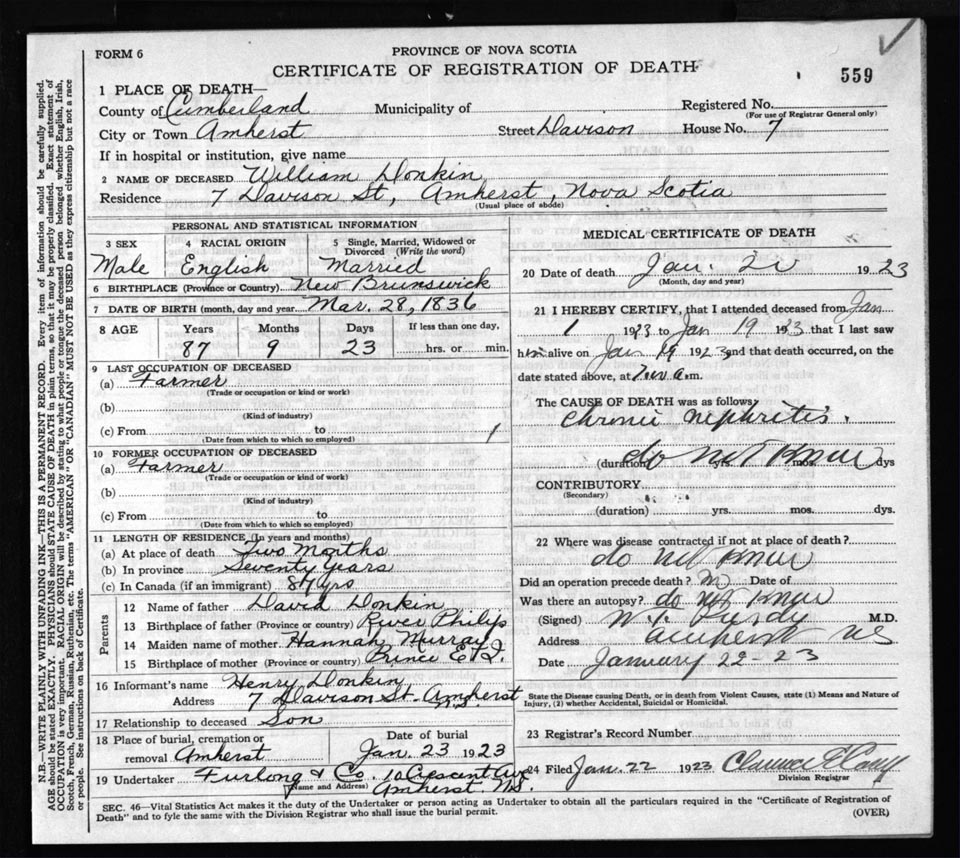 FORM 6
PROVINCE OF NOVA SCOTIA
CERTIFICATE OF REGISTRATION OF DEATH
559
1 PLACE OF DEATH—
County of Cumberland Municipality of Registered No.
(For use of Registrar General only)
City or Town Amherst Street Davison House No. 7
If in hospital or institution, give name
2 NAME OF DECEASED William Donkin
Residence 7 Davison St, Amherst, Nova Scotia
(Usual place of abode)
PERSONAL AND STATISTICAL INFORMATION
3 SEX 4 RACIAL ORIGIN 5 Single, Married, Widowed or Divorced (Write the word)
Male English Married
6 BIRTHPLACE (Province or Country) New Brunswick
7 DATE OF BIRTH (month, day and year) Mar. 28, 1836
8 AGE Years Months Days If less than one day,
87 9 23 hrs. or min.
9 LAST OCCUPATION OF DECEASED
(a) Farmer
(Trade or occupation or kind or work)
(b)
(Kind of industry)
(c) From to
(Date from which to which so employed)
10 FORMER OCCUPATION OF DECEASED
(a) Farmer
(Trade or occupation or kind of work)
(b)
(Kind of industry)
(c) From to
(Date from which to which so employed)
11 LENGTH OF RESIDENCE (In years and months)
(a) At place of death Two Months
(b) In province Seventy Years
(c) In Canada (if an immigrant) 87 yrs
Parents
12 Name of father David Donkin
13 Birthplace of father (Province or country) River Philip
14 Maiden name of mother Hannah Murray
15 Birthplace of mother (Province or country) Prince E. I.
16 Informant's name Henry Donkin
Address 7 Davison St. Amherst N.S.
17 Relationship to deceased Son
18 Place of burial, cremation or removal Amherst
Date of burial Jan. 23 1923
19 Undertaker Furlong & Co. 10 Crescent Ave
(Name and Address) Amherst. N.S.
MEDICAL CERTIFICATE OF DEATH
20 Date of death Jan. 1923
(Month, day and year)
21 I HEREBY CERTIFY, that I attended deceased from Jan
1 1923 to Jan 19 1923 that I last saw
him alive on Jan 19 1923 and that death occurred, on the
date stated above, at a.m.
The CAUSE OF DEATH was as follows:
Chronic nephritis.
(duration) yrs. mos. dys
do not know
CONTRIBUTORY
(Secondary)
(duration) yrs. mos. dys.
22 Where was disease contracted if not at place of death?
do not know
Did an operation precede death? Date of
Was there an autopsy? do not know
(Signed) Purdy M.D.
Address Amherst NS
Date January 22-23
State the Disease causing Death, or in death from Violent Causes, state (1) Means and Nature of
Injury, (2) whether Accidental, Suicidal or Homicidal.
23 Registrar's Record Number
24 Filed Jan. 22 1923 Clarence
Division Registrar
SEC. 46—Vital Statistics Act makes it the duty of the Undertaker or person acting as Undertaker to obtain all the particulars required in the "Certificate of Registration of
Death" and to fyle the same with the Division Registrar who shall issue the burial permit.
(OVER)
N.B.—WRITE PLAINLY WITH UNFADING INK—THIS IS A PERMANENT RECORD. Every item of information should be carefully supplied.
AGE should be stated EXACTLY. PHYSICIANS should STATE CAUSE OF DEATH in plain terms, so that it may be properly classified. Exact statement of
OCCUPATION is very important. RACIAL ORIGIN will be described by stating to what people or tongue the deceased person belonged, whether English, Irish,
Scotch, French, German, Russian, Ruthenian, etc. The terms "AMERICAN" OR "CANADIAN" MUST NOT BE USED as they express citizenship but not a race
or people. See instructions on back of Certificate.